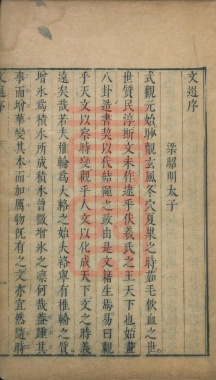 文選序
梁昭明太子
式觀元始眇覿玄風冬穴夏巢之時茹毛飲血之世
世質民淳斯文未作逮乎伏羲氏之王天下也始畫
八卦造書契以代結繩之政由是文籍生焉易曰觀
乎天文以察時變觀乎人文以化成天下文之時義
遠矣哉若夫椎輪為大輅之始大輅寧有椎輪之質
增冰為積水所成積水曾微增冰之凛何哉蓋踵其
事而增華變其本而加厲物既有之文亦宜然隨時
文選序